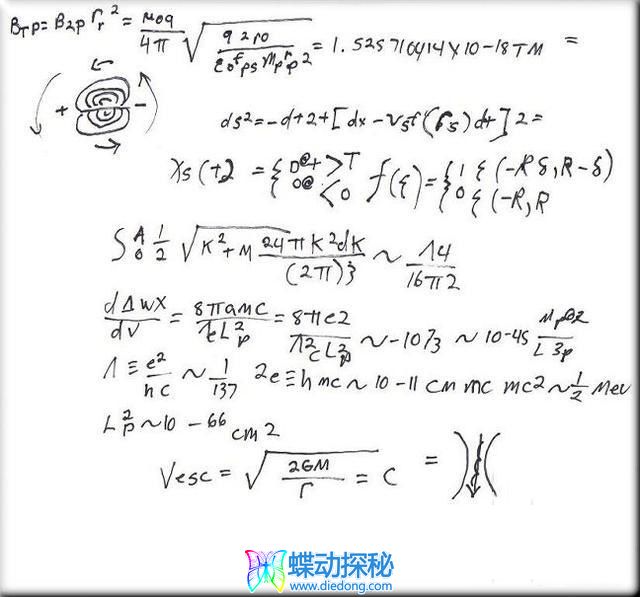 BTP = B2p Γr² = μ0q/4π √(q 2 r0 / ε0 f ps Mp r p 2) = 1.525710414 X 10-18 TM =
+ -
ds² = -d+2+[dx - vsf(rs)dt] 2 =
Xs(+2 = { D@+ >T 0@ <0 f(ξ) = { 1 ξ (-R δ, R-δ) 0 ξ (-R, R
S A 0 1/2 √K²+M 24πK²dK / (2π)3 ~ Λ4 / 16π2
dΔwx/dv = 8πamc/λeL²p = 8πe2/Λ²cL²p ~ -1073 ~ 10-45 Mp@2/L3p
Λ ≡ e²/hc ~ 1/137 2e ≡ h mc ~ 10-11 cm mc mc2 ~ 1/2 Mev
L²p ~ 10 - 66 cm 2
Vesc = √(2GM/r) = C = )(
蝶动探秘
www.diedong.com